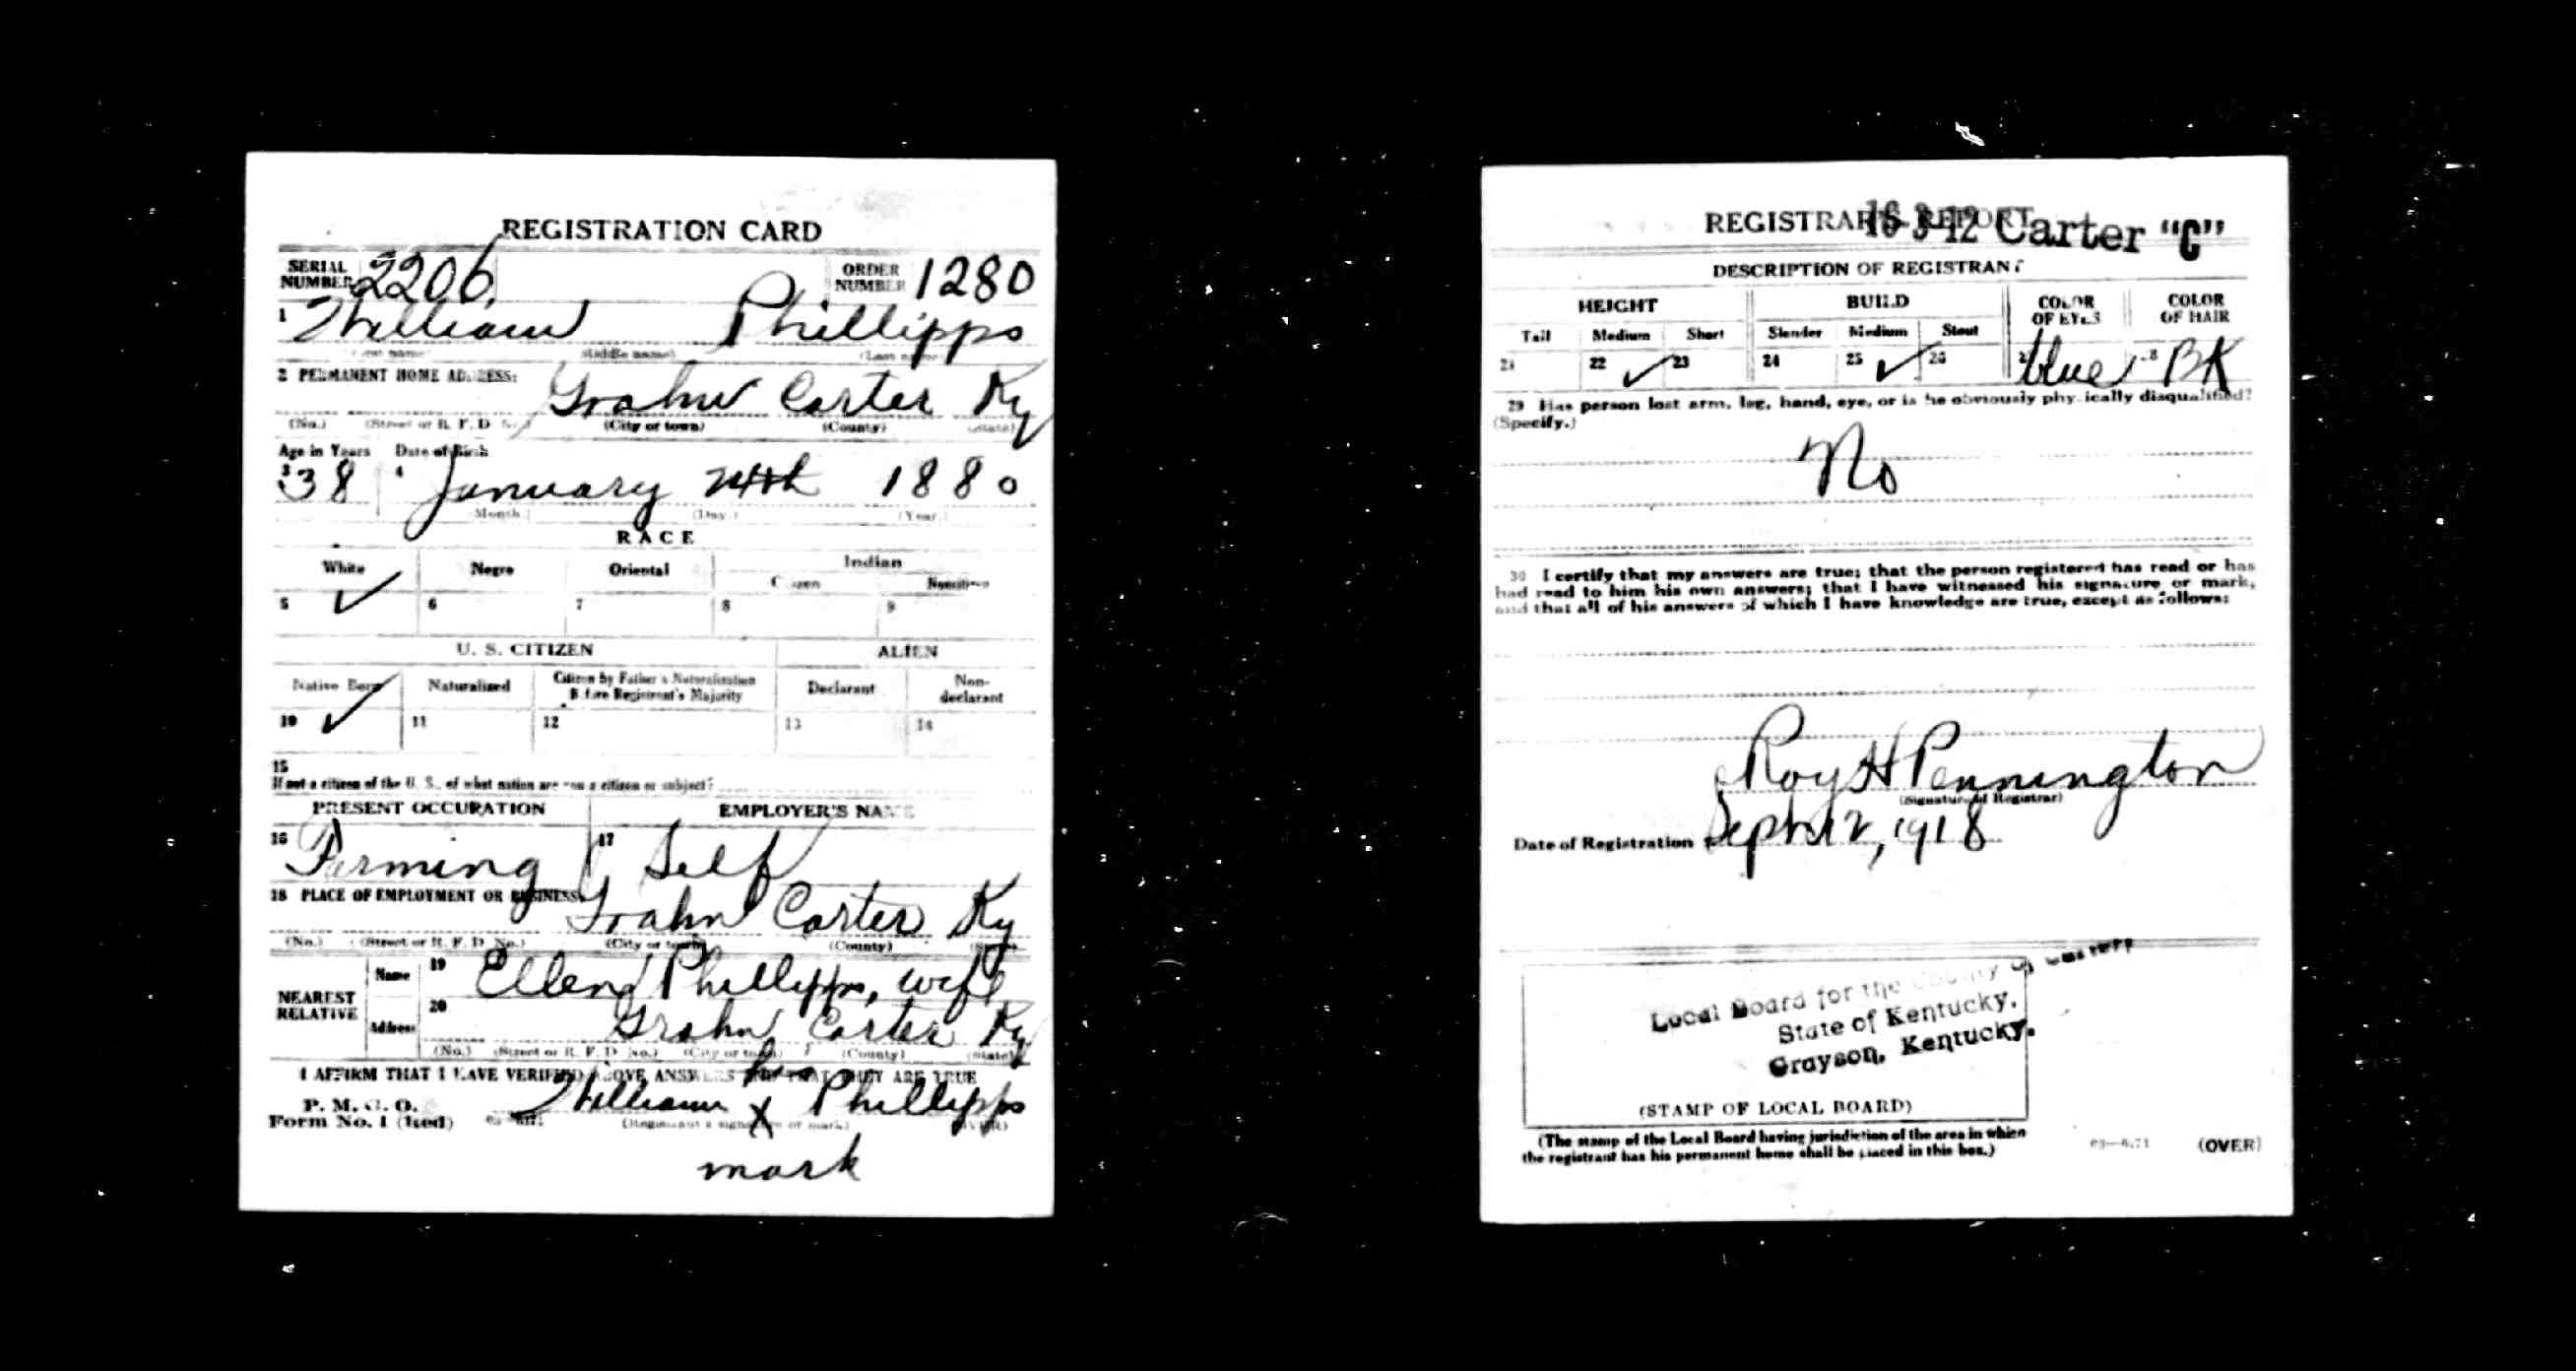 REGISTRATION CARD
SERIAL NUMBER 2206 ORDER NUMBER 1280
1 William Phillipps
(Middle name) (Last name)
2 PERMANENT HOME ADDRESS: Grahn Carter Ky
(No.) (Street or R. F. D. No.) (City or town) (County) (State)
Age in Years Date of Birth
3 38 4 January 24th 1880
(Month.) (Day.) (Year.)
RACE
White Negro Oriental Indian
Citizen Noncitizen
5 ✓ 6 7 8 9
U. S. CITIZEN ALIEN
Native Born Naturalized Citizen by Father's Naturalization Before Registrant's Majority Declarant Non-declarant
10 ✓ 11 12 13 14
15
If not a citizen of the U. S., of what nation are you a citizen or subject?
PRESENT OCCUPATION EMPLOYER'S NAME
16 Farming 17 Self
18 PLACE OF EMPLOYMENT OR BUSINESS: Grahn Carter Ky
(No.) (Street or R. F. D. No.) (City or town) (County) (State)
NEAREST RELATIVE Name 19 Ellen Phillipps, wife
Address 20 Grahn Carter Ky
(No.) (Street or R. F. D. No.) (City or town) (County) (State)
I AFFIRM THAT I HAVE VERIFIED ABOVE ANSWERS AND THAT THEY ARE TRUE
his
P. M. G. O.
Form No. 1 (Red) William X Phillipps
(Registrant's signature or mark) (OVER)
mark
REGISTRAR'S REPORT
16 3 12 Carter "C"
DESCRIPTION OF REGISTRANT
HEIGHT BUILD COLOR OF EYES COLOR OF HAIR
Tall Medium Short Slender Medium Stout
21 22 ✓ 23 24 25 ✓ 26 27 blue 28 BK
29 Has person lost arm, leg, hand, eye, or is he obviously physically disqualified?
(Specify.)
No
30 I certify that my answers are true; that the person registered has read or has
had read to him his own answers; that I have witnessed his signature or mark,
and that all of his answers of which I have knowledge are true, except as follows:
Roy H Pennington
(Signature of Registrar)
Date of Registration Sept. 12, 1918
Local Board for the County of
State of Kentucky.
Grayson, Kentucky.
(STAMP OF LOCAL BOARD)
(The stamp of the Local Board having jurisdiction of the area in which
the registrant has his permanent home shall be placed in this box.)
(OVER)